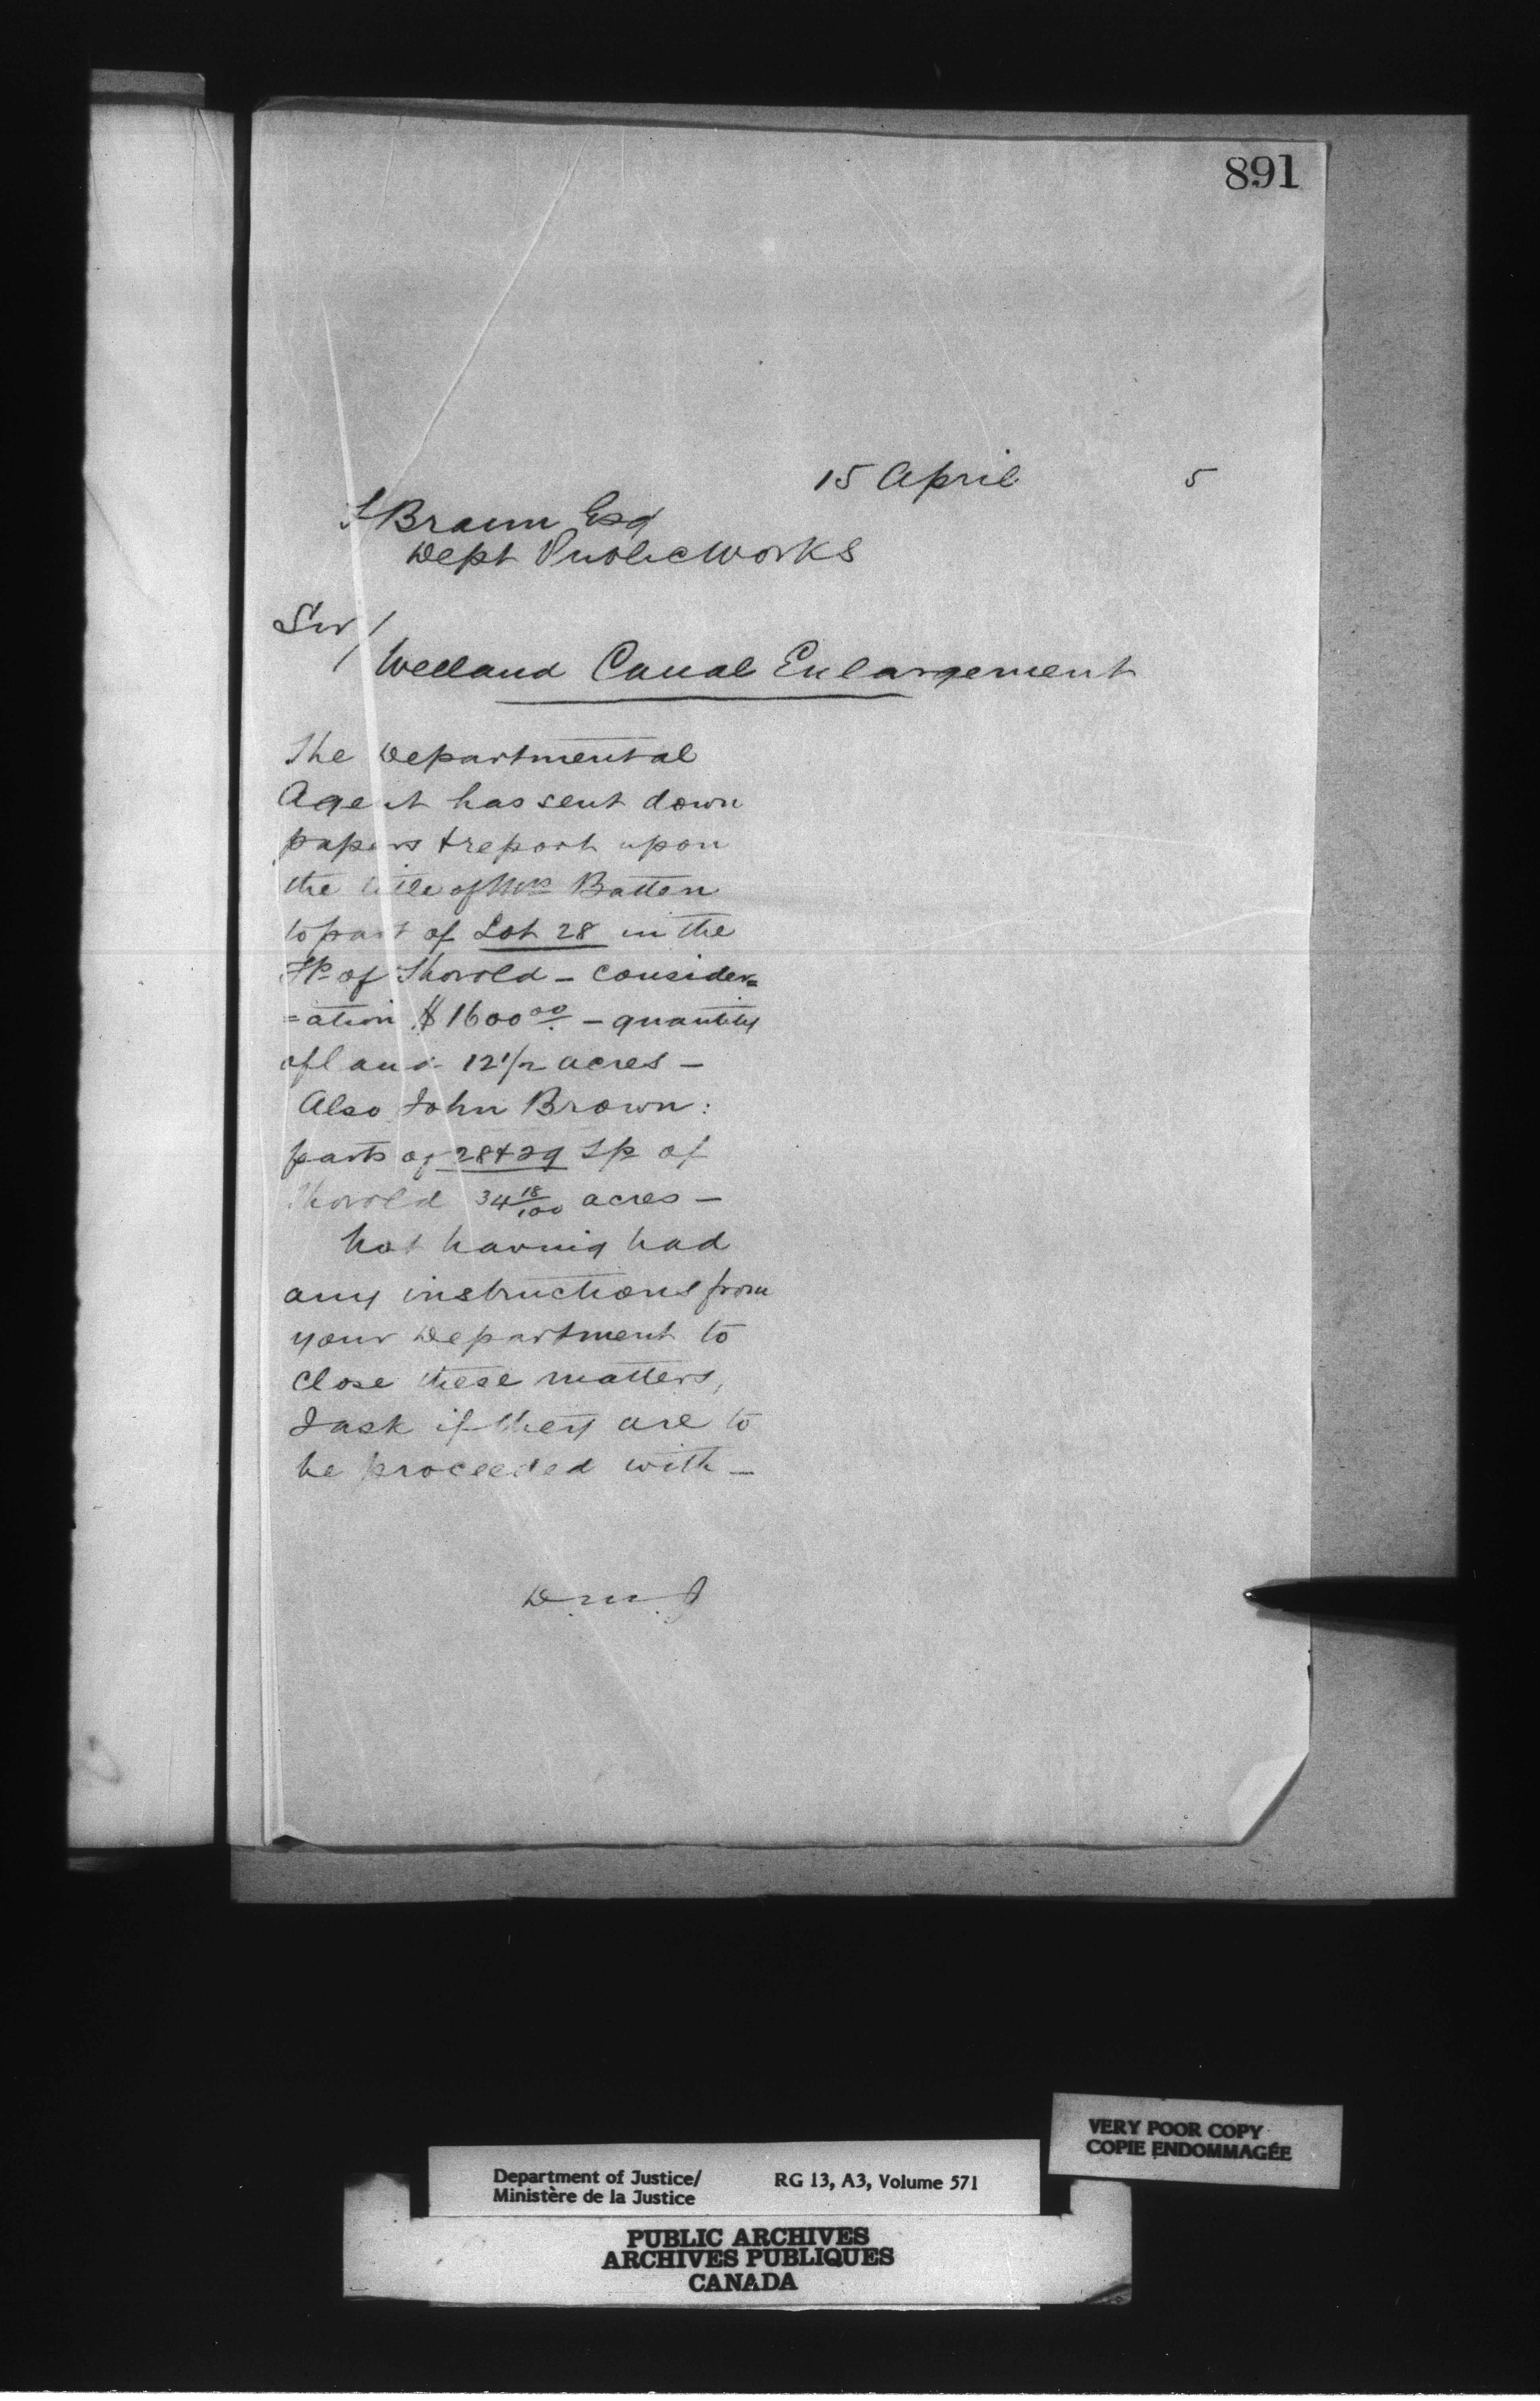 891
15 April 5
F Braun Esq
Dept Public Works
Sir/
Welland Canal Enlargement
The Departmental
Agent has sent down
papers & report upon
the title of Mrs Batten
to part of Lot 28 in the
Tp of Thorold – consider=
=ation $1600 00 – quantity
of land 12 1/2 acres –
Also John Brown:
parts of 28 & 29 Tp of
Thorold 34 18/100 acres –
Not having had
any instructions from
your Department to
close these matters,
I ask if they are to
be proceeded with –
D.M.J
VERY POOR COPY
COPIE ENDOMMAGÉE
Department of Justice/ RG 13, A3, Volume 571
Ministère de la Justice
PUBLIC ARCHIVES
ARCHIVES PUBLIQUES
CANADA